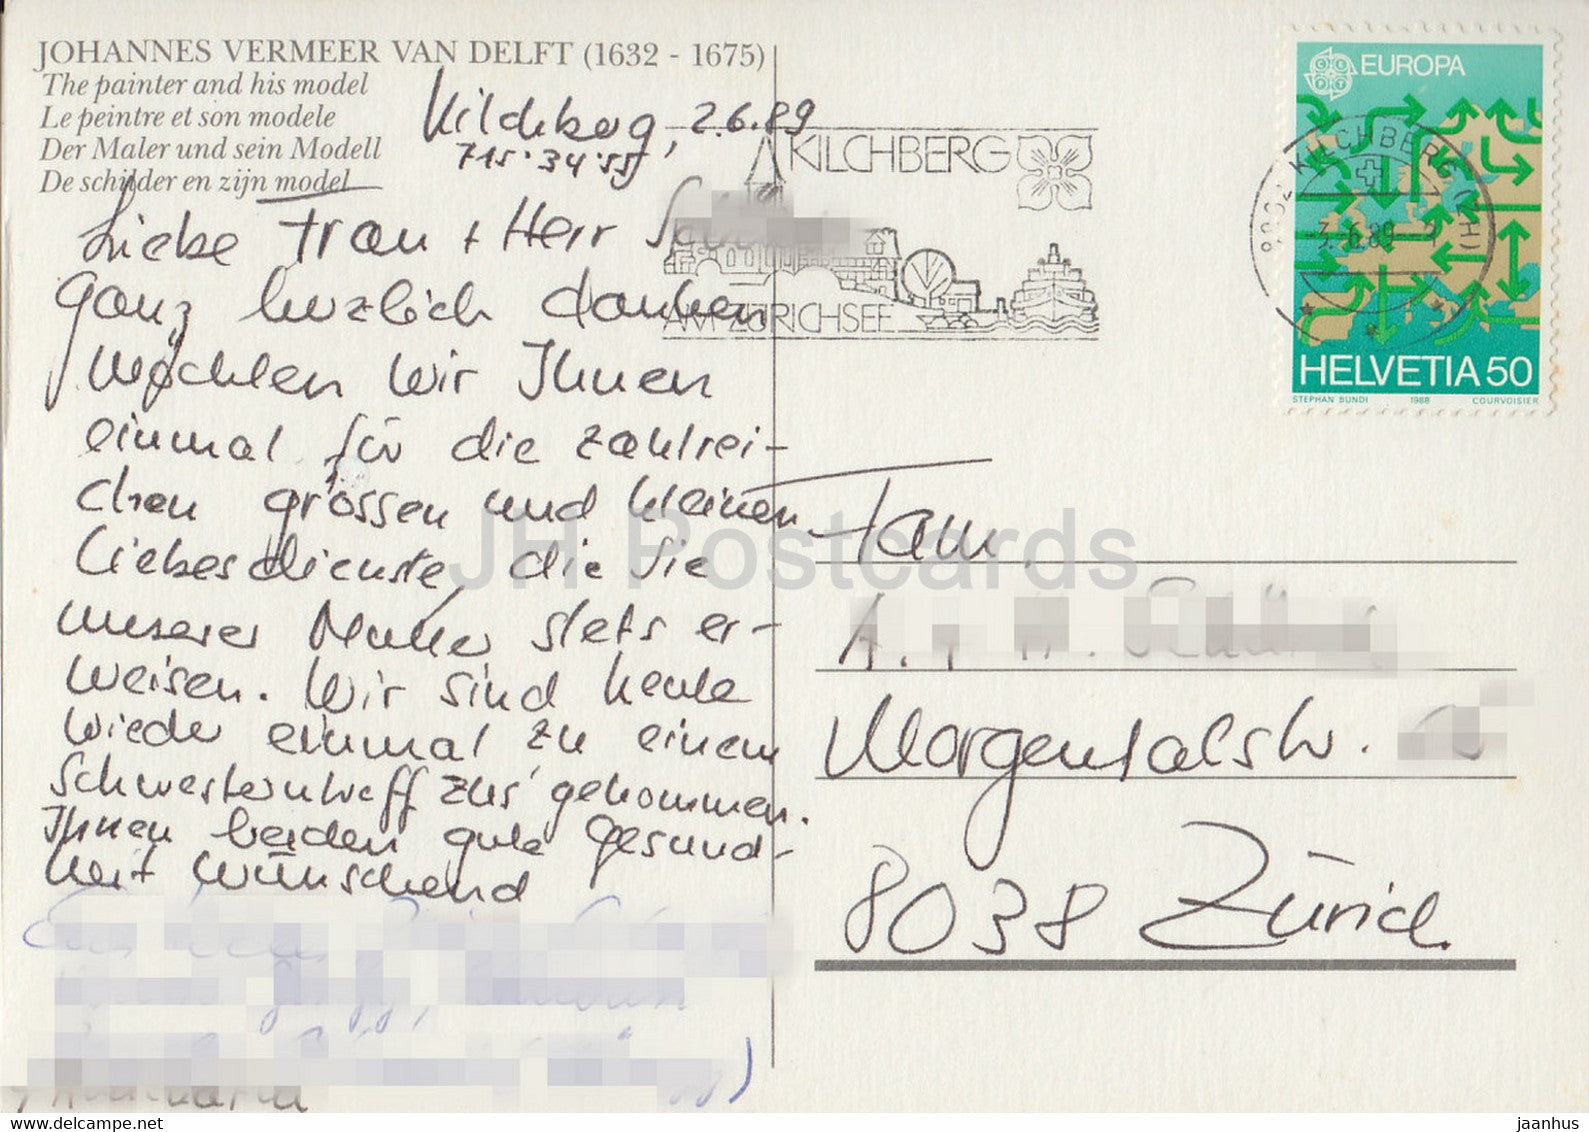 JOHANNES VERMEER VAN DELFT (1632 - 1675)
The painter and his model
Le peintre et son modele
Der Maler und sein Modell
De schilder en zijn model
Kilchberg, 2.6.89
715 34 55
Liebe Frau + Herr
Ganz herzlich danken
möchten wir Ihnen
einmal für die zahlrei-
chen grossen und kleinen
Liebesdienste, die Sie
unserer Mutter stets er-
weisen. Wir sind heute
wieder einmal zu einem
Schwesterntreff zus' gekommen.
Ihnen beiden gute Gesund-
heit wünschend
KILCHBERG
AM ZÜRICHSEE
8802 KILCHBERG (ZH)
-3.-6.89
EUROPA
CEPT
HELVETIA 50
STEPHAN BUNDI 1988 COURVOISIER
Fam.
Morgentalstr.
8038 Zürich.
JH Postcards
www.delcampe.net
jaanhus